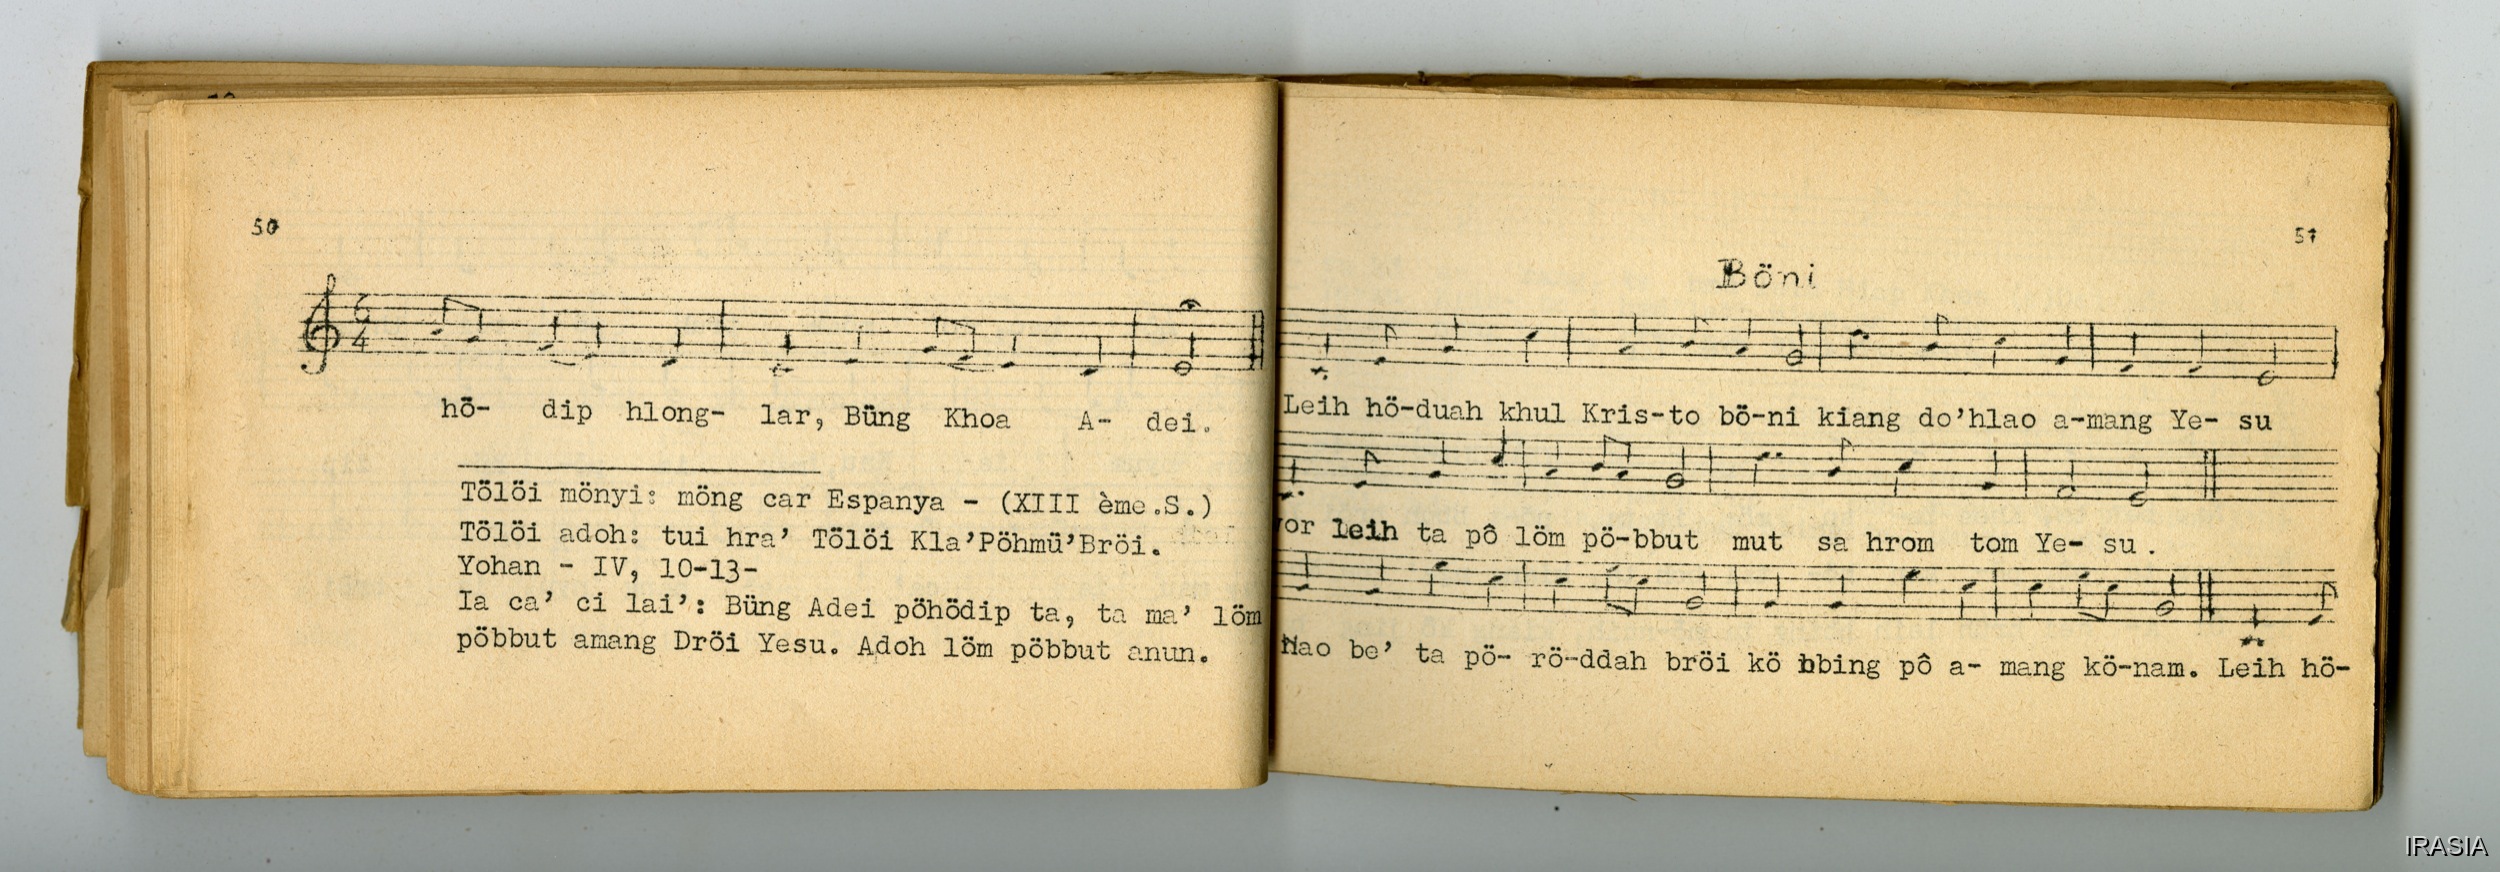 50
6
4
hö- dip hlong- lar, Büng Khoa A- dei.
Tölöi mönyi: möng car Espanya - (XIII ème.S.)
Tölöi adoh: tui hra' Tölöi Kla'Pöhmü'Bröi.
Yohan - IV, 10-13-
Ia ca' ci lai': Büng Adei pöhödip ta, ta ma' löm
pöbbut amang Dröi Yesu. Adoh löm pöbbut anun.
51
Böni
Leih hö-duah khul Kris-to bö-ni kiang do'hlao a-mang Ye- su
leih ta pô löm pö-bbut mut sa hrom tom Ye- su.
Hao be' ta pö- rö-ddah bröi kö bbing pô a- mang kö-nam. Leih hö-
IRASIA